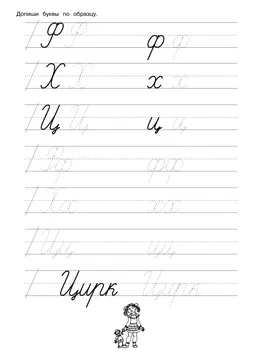 Допиши буквы по образцу.
Ф Ф ф ф
Х Х х х
Ц Ц ц ц
Фф фф
Хх хх
Цц цц
Цирк Цирк